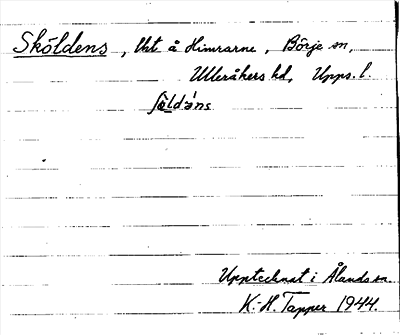 Sköldens, Vrt å Himrarne, Börje sn,
Ulleråkers hd, Upps. l.
ʃö̀ldáns
Upptecknat i Ålands sn.
K.-H. Tapper 1944.